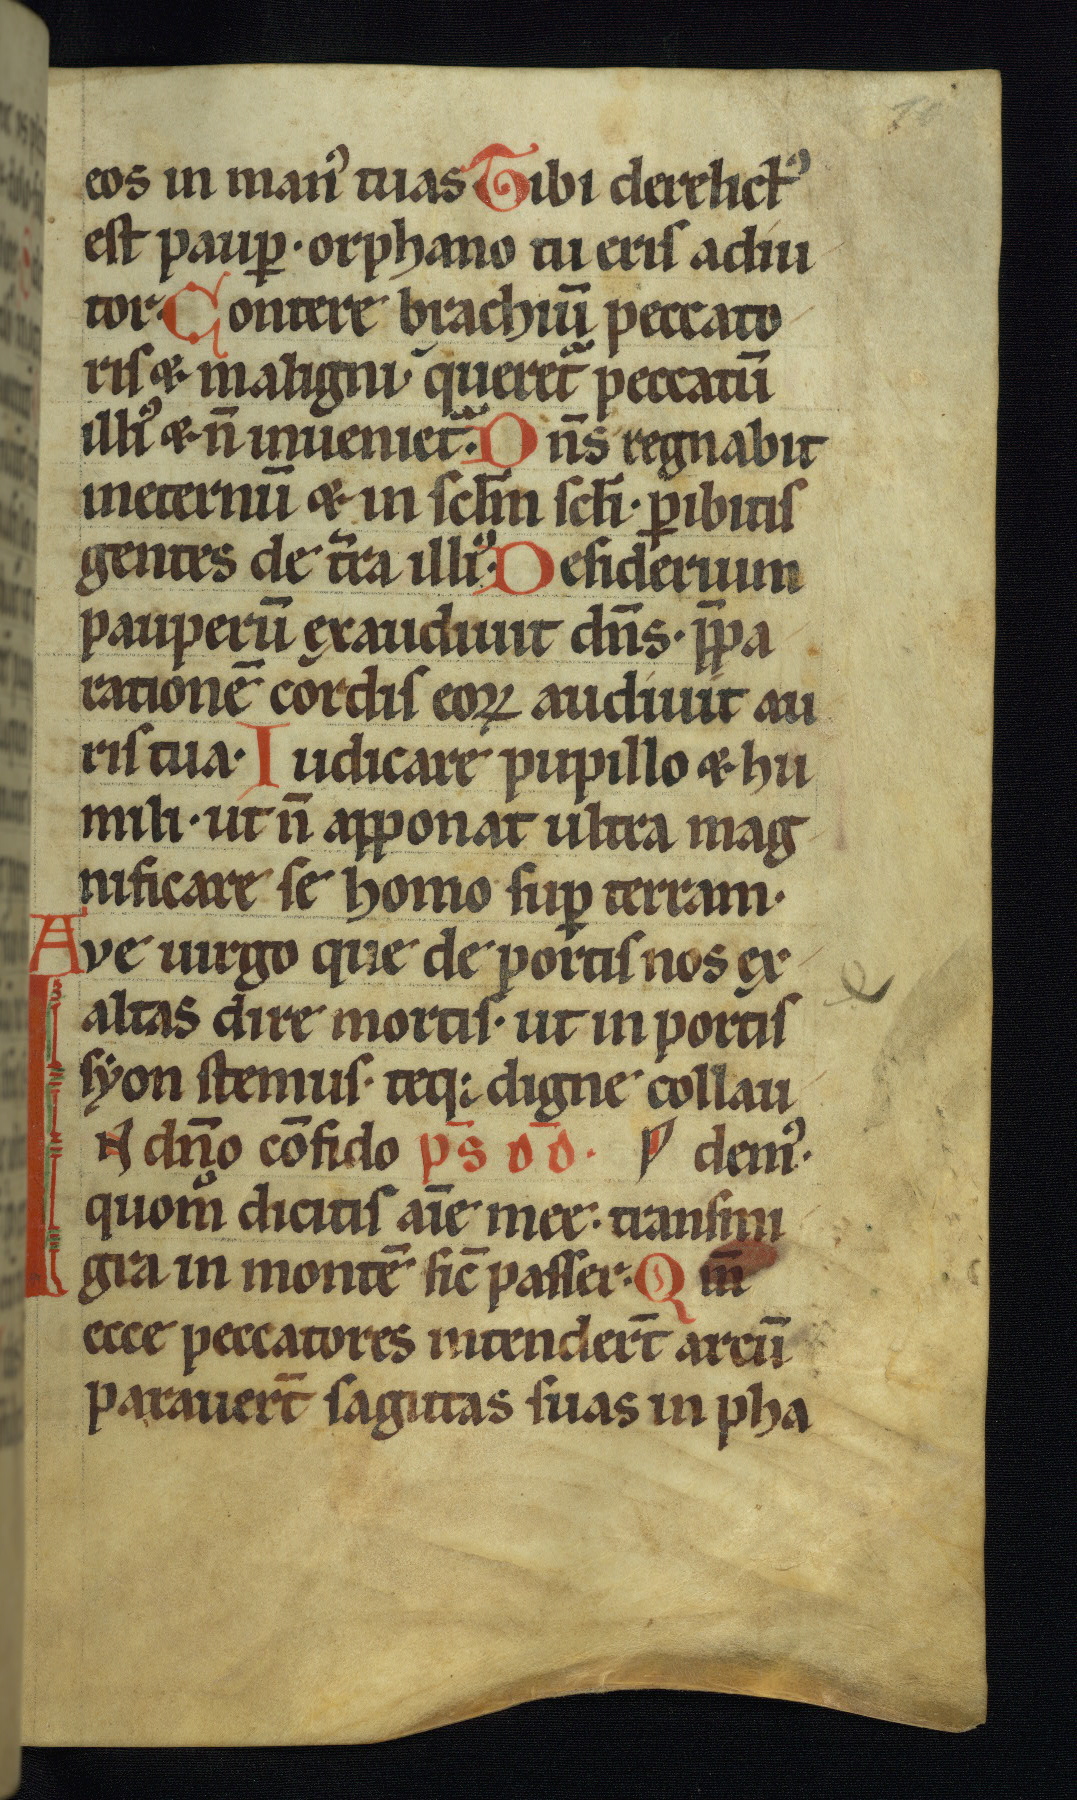 eos in manꝰ tuas Tibi derelictꝰ
est paup̲ · orphano tu eris adiu
tor · Contere brachiū peccato
ris & maligni queret᷑ peccatū
illiꝰ & n̄ inueniet᷑ · Dn̄s regnabit
ineternū & in sclm̄ scli · ꝑibitis
gentes de t̄ra illiꝰ · Desiderium
pauperū exaudiuit dn̄s · p̄pa
rationē cordis eoꝝ audiuit au
ris tua · Iudicare pupillo & hu
mili · ut n̄ apponat ultra mag
nificare se homo suꝑ terram ·
Ave uirgo que de portis nos ex
altas dire mortis · ut in portis
syon stemus · teq; digne collau
IN dn̄o cōfido ps̄ dd̄ · demꝰ ·
quom̊ dicitis aīe mee · transmi
gra in montē sic̄ passer · Qm̄
ecce peccatores intenderт̄ arcū
parauert̄ sagittas suas in pha